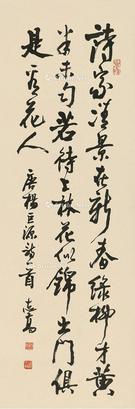 詩家清景在新春綠柳才黃
半未勻若待上林花似錦出門俱
是看花人
唐楊巨源詩一首